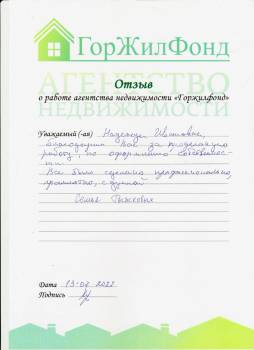 ГорЖилФонд
АГЕНТСТВО
НЕДВИЖИМОСТИ
Отзыв
о работе агентства недвижимости «Горжилфонд»
Уважаемый (-ая) Надежда Ивановна,
благодарим Вас за проделанную
работу, по оформлению собственнос-
ти.
Все было сделано профессионально,
грамотно, с душой
Семья
Дата 13.02 2022
Подпись